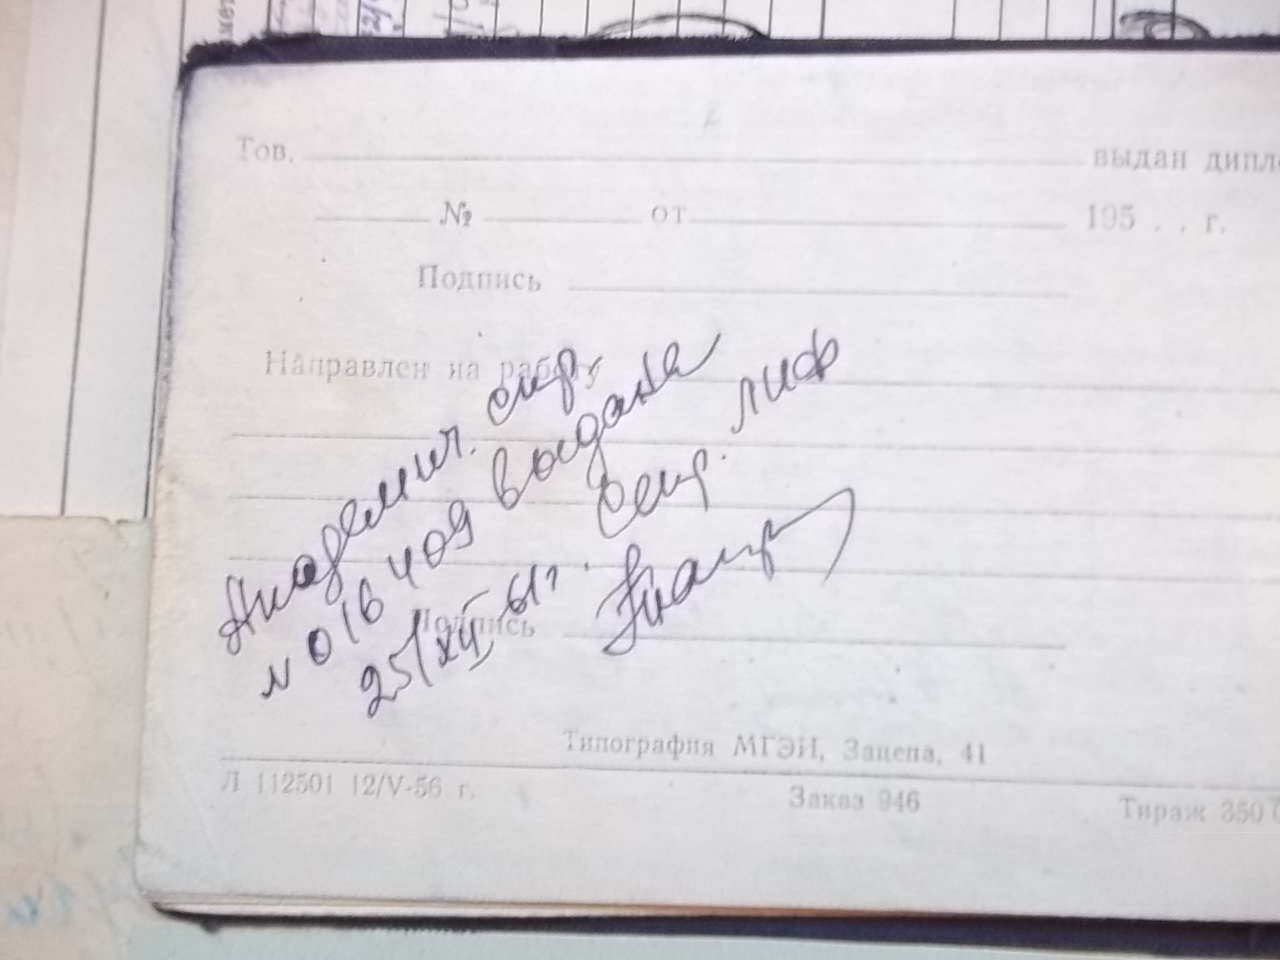 Тов. выдан дипл
№ от 195 . . г.
Подпись
Направлен на работу
Академич. спр.
N 016409 выдана
25/XII 61г. Секр. ЛИФ
Подпись
Типография МГЭИ, Зацепа, 41
Л 112501 12/V-56 г. Заказ 946 Тираж 350